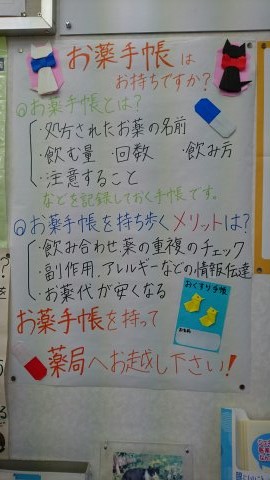 お薬手帳は
お持ちですか?
◎お薬手帳とは?
・処方されたお薬の名前
・飲む量 ・回数 ・飲み方
・注意すること
などを記録しておく手帳です。
◎お薬手帳を持ち歩くメリットは?
・飲み合わせ、薬の重複のチェック
・副作用、アレルギーなどの情報伝達
・お薬代が安くなる
おくすり手帳
お薬手帳を持って
薬局へお越し下さい!